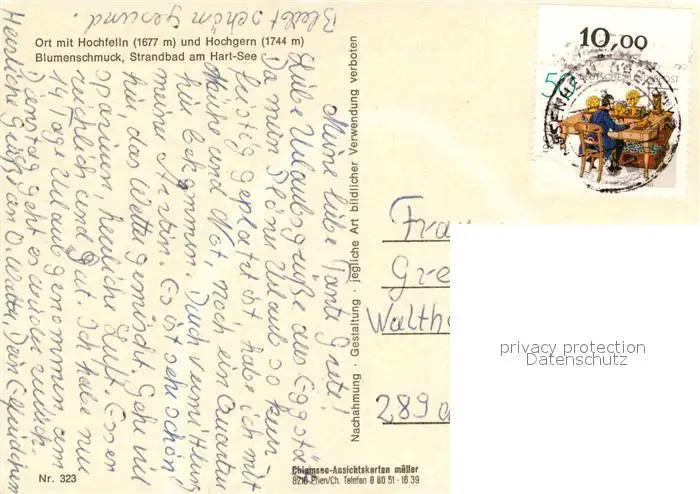 Bleibt schön gesund.
Ort mit Hochfelln (1677 m) und Hochgern (1744 m)
Blumenschmuck, Strandbad am Hart-See
Meine liebe Tante Grete!
Liebe Urlaubsgrüße aus Eggstätt
Da mein Plöner Urlaub so kurz
fristig geplatzt ist, habe ich mit
Mühe und Not, noch ein Quartier
hier bekommen. Durch Vermittlung
meiner Ärztin. Es ist sehr schön
hier, das Wetter gemischt. Gehe viel
spazieren, herrliche Luft. Essen
reichlich und gut. Ich habe nur
14 Tage Urlaub genommen, am
Dienstag geht es wieder zurück.
Herzliche Grüße an O. Walter, Dein
Nr. 323
Nachahmung · Gestaltung · jegliche Art bildlicher Verwendung verboten
Chiemsee-Ansichtskarten müller
8210 Prien/Ch. Telefon 0 80 51 - 16 39
10,00
50
Frau
Gre
Walth
289
privacy protection
Datenschutz